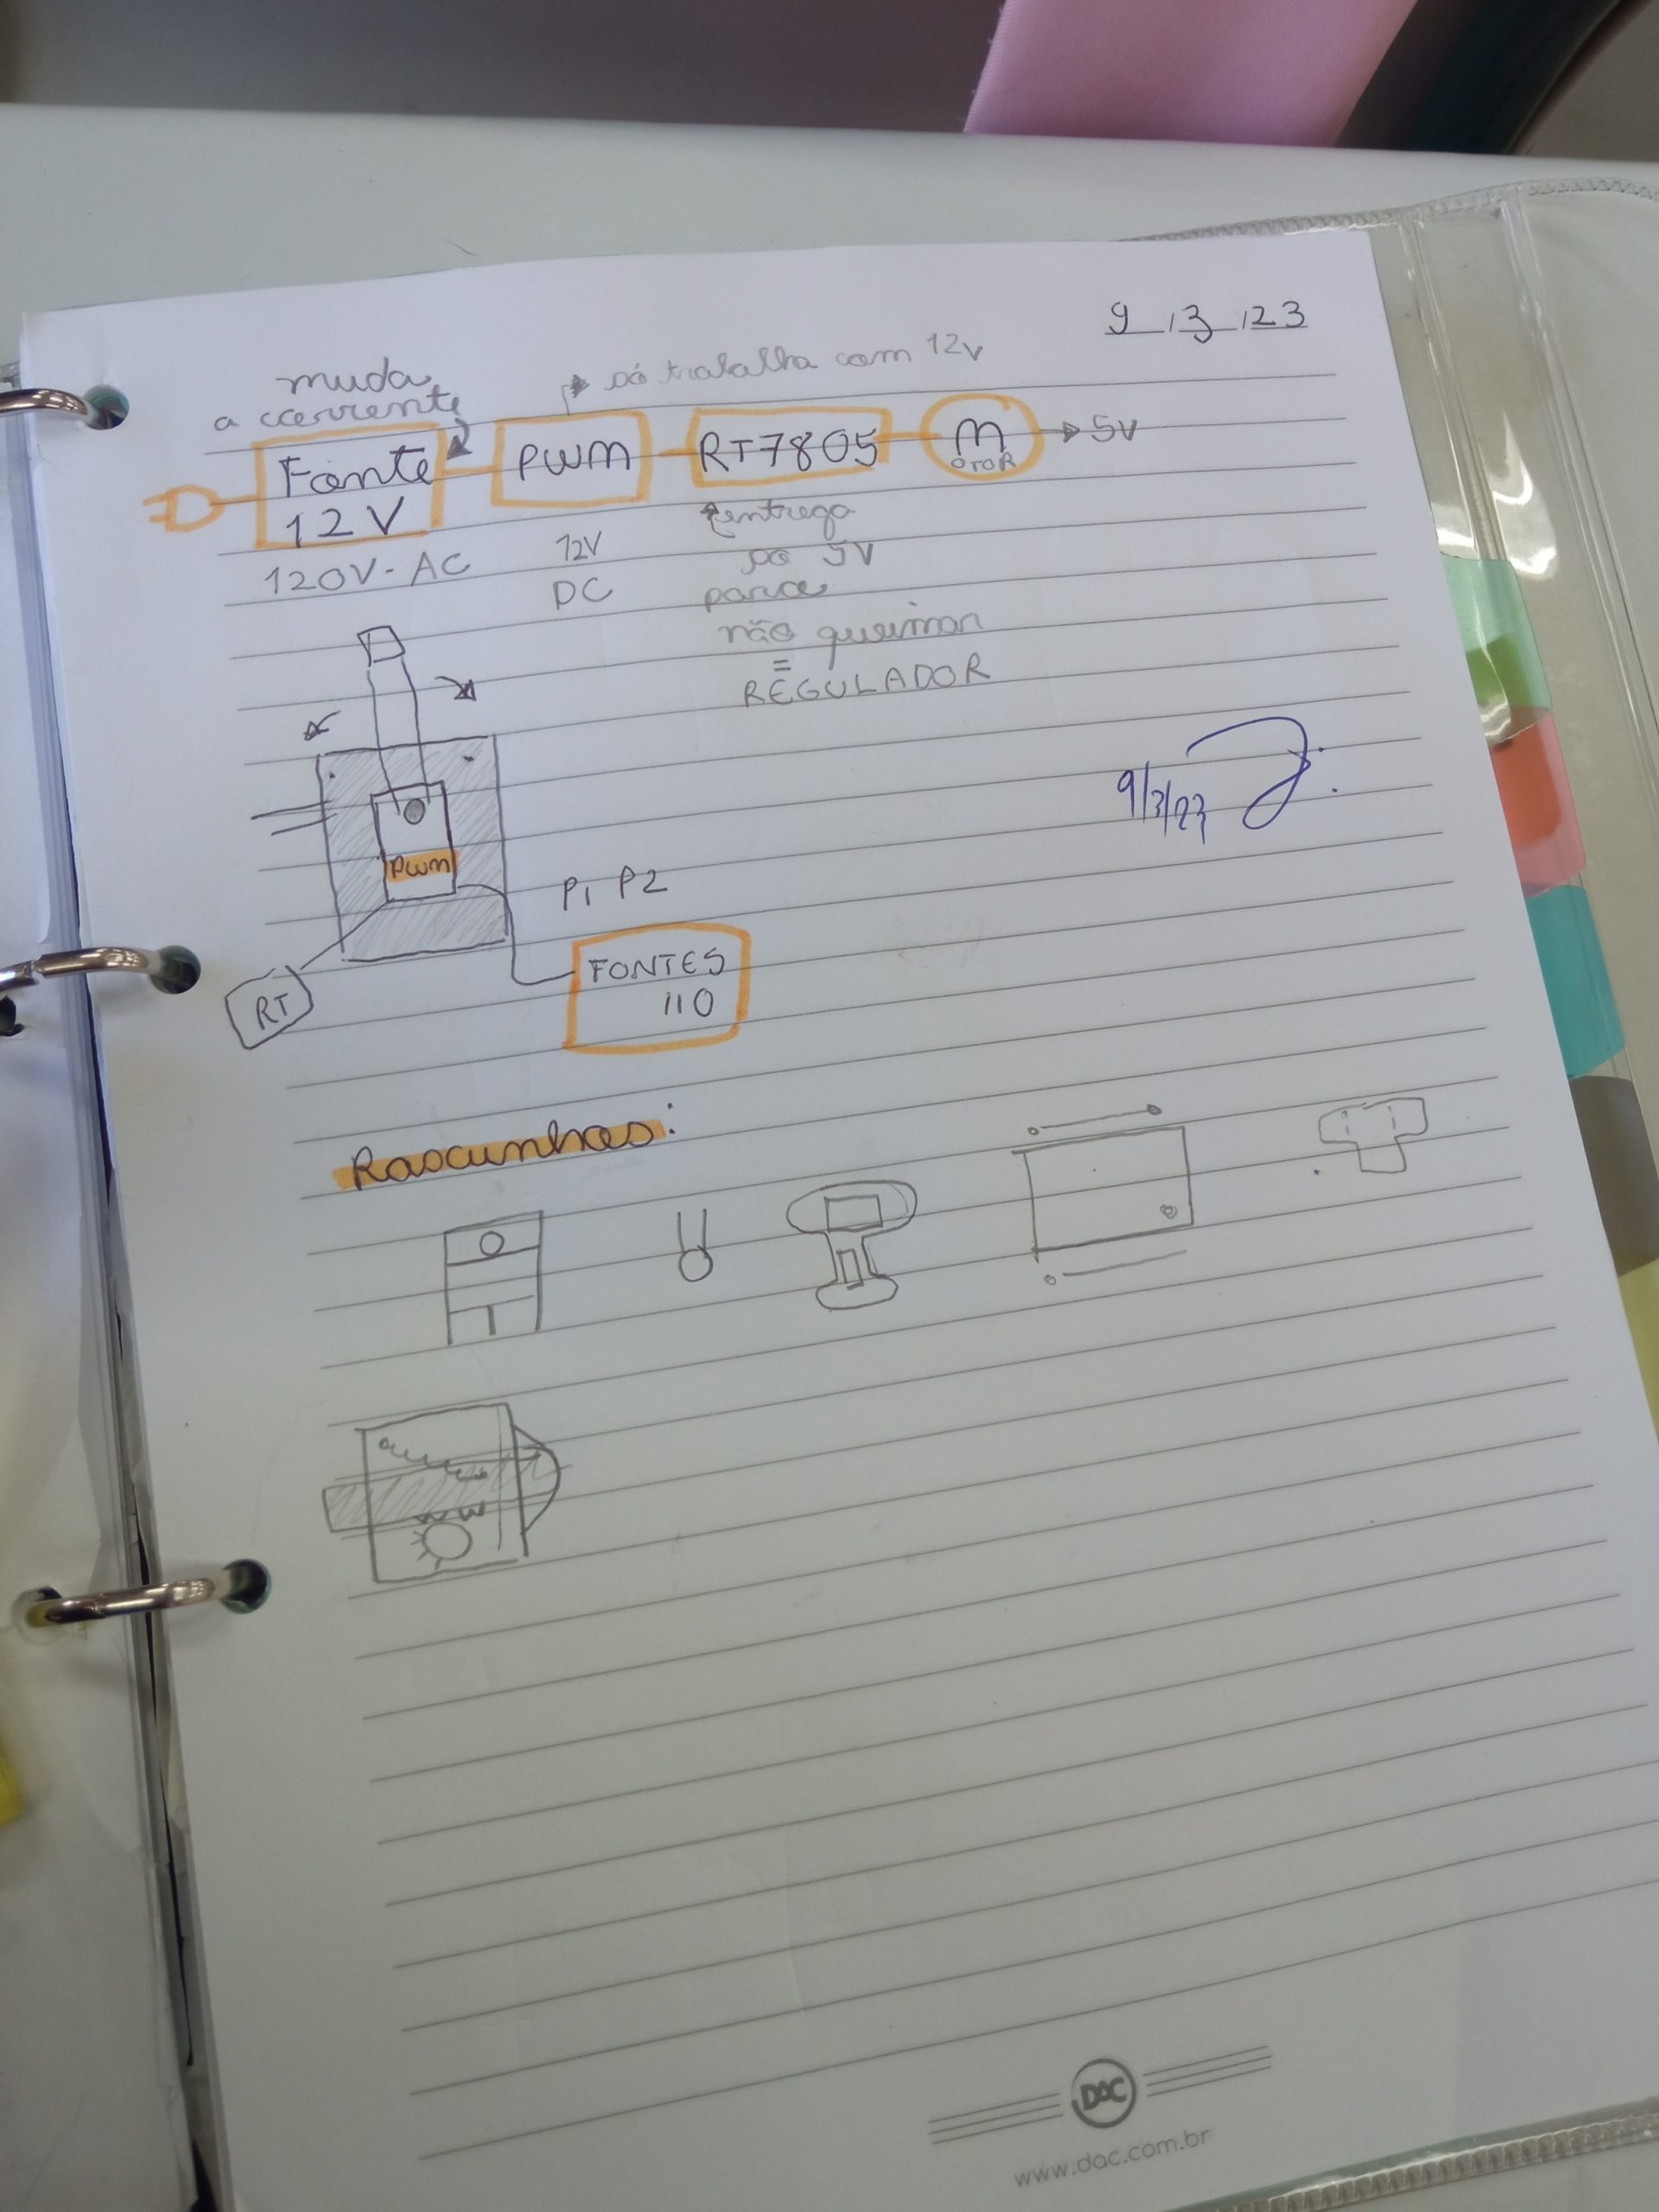 9 / 3 / 23
muda
a corrente
só trabalha com 12v
Fonte
12V
PWM
RT7805
M
OTOR
5V
120V - AC
12V
DC
entrega
só 5V
para
não queimar
=
REGULADOR
9/3/23
PWM
P1 P2
RT
FONTES
110
Rascunhos:
DAC
www.dac.com.br